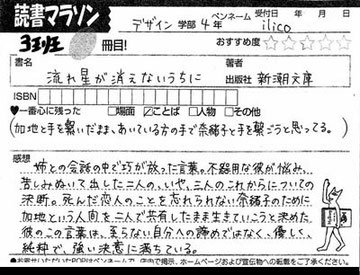 読書マラソン
デザイン 学部 4年 ペンネーム ilico 受付日 年 月 日
冊目! おすすめ度 ☆☆☆☆☆
書名 流れ星が消えないうちに 著者
出版社 新潮文庫
ISBN
♥一番心に残った □場面 ☑ことば □人物 □その他
(加地と手を繋いだまま、あいている方の手で奈緒子と手を繋ごうと思ってる。)
感想
姉との会話の中で巧が放った言葉。不器用な彼が悩み、
苦しみぬいて出した二人の、いや、三人のこれからについての
決断。死んだ恋人のことを忘れられない奈緒子のために
加地という人間を二人で共有したまま生きていこうと決めた
彼のこの言葉は、至らない自分への諦めではなく、優しく、
純粋で、強い決意に満ちている。
♥お寄せいただいたPOPはペンネームで、店内で掲示、ホームページおよび宣伝物への転載をご了承ください。